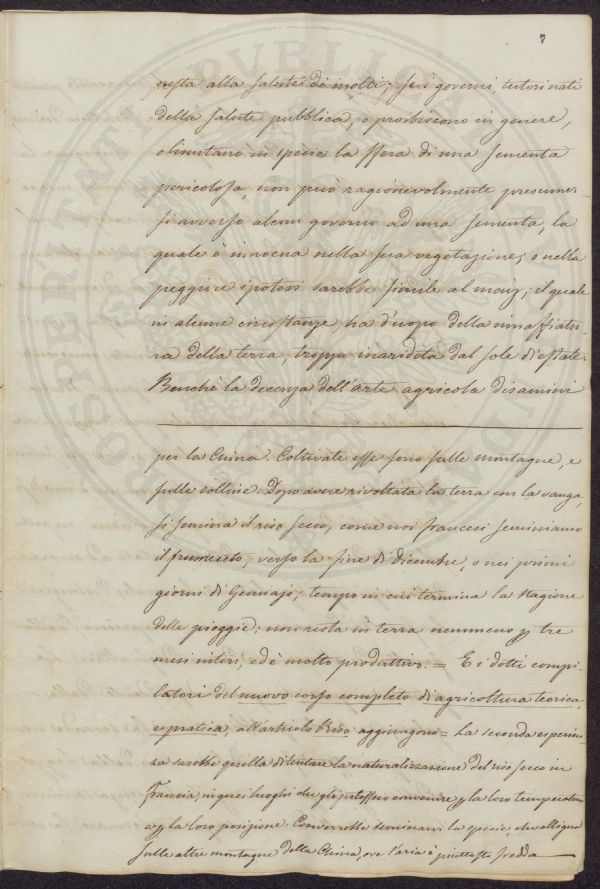 7
nesta alla salute di molti; se i governi, tutori nati
della salute pubblica, o proibiscono in genere,
o limitano in specie la sfera di una sementa
pericolosa, non può ragionevolmente presumer-
si avverso alcun governo ad una sementa, la
quale è innocua nella sua vegetazione; o nella
peggiore ipotesi sarebbe simile al maiz; il quale
in alcune circostanze, ha d'uopo della innaffiatu-
ra della terra, troppo inaridita dal sole d'estate.
Benchè la decenza dell'arte agricola disamini
per la China. Coltivate esse sono sulle montagne, e
sulle colline. Dopo avere rivoltata la terra con la vanga,
si semina il riso secco, come noi francesi seminiamo
il frumento, verso la fine di dicembre, o nei primi
giorni di Gennajo; tempo in cui termina la stagione
delle pioggie; non resta in terra nemmeno p tre
mesi interi, ed è molto produttivo. = E i dotti compi-
latori del nuovo corso completo di agricoltura teorica,
e pratica, all'articolo Riso aggiungono = La seconda esperien-
za sarebbe quella di tentare la naturalizzazione del riso secco in
Francia, in quei luoghi che gli potessero convenire p la loro temperatura
e p la loro posizione. Converrebbe seminarvi la specie, che alligna
sulle altre montagne della China, ove l'aria è piuttosto fredda